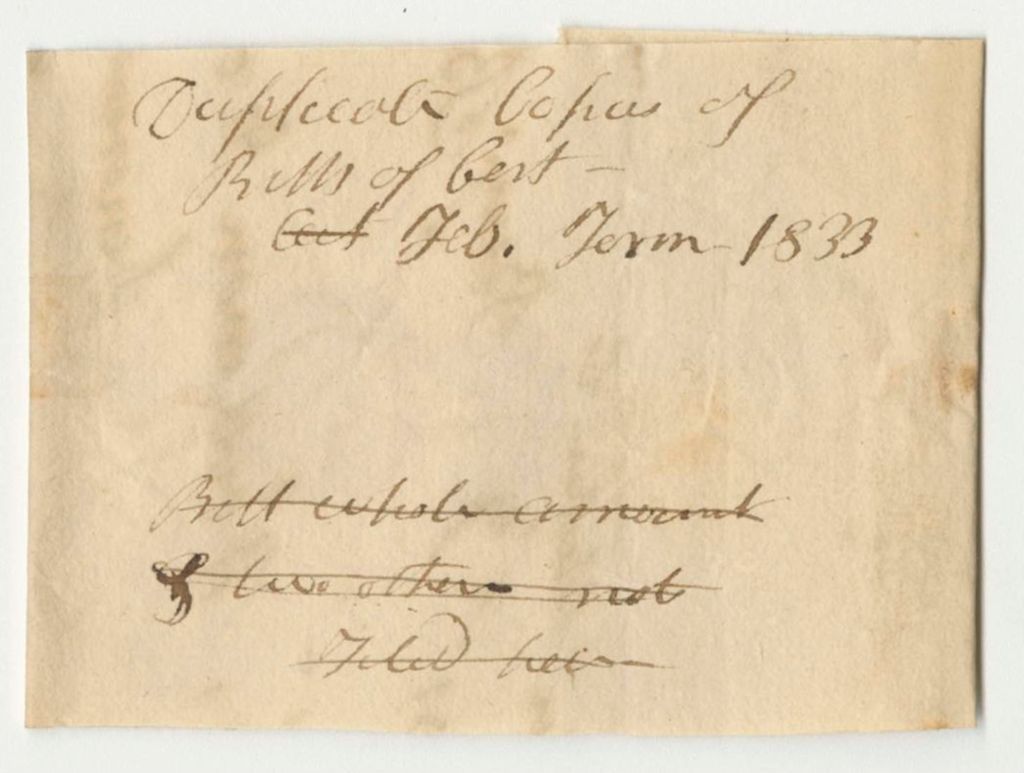 Duplicate Copies of
Bills of Cost –
Cost Feb. Term 1833
Bill whole amount
& two others not
Filed here